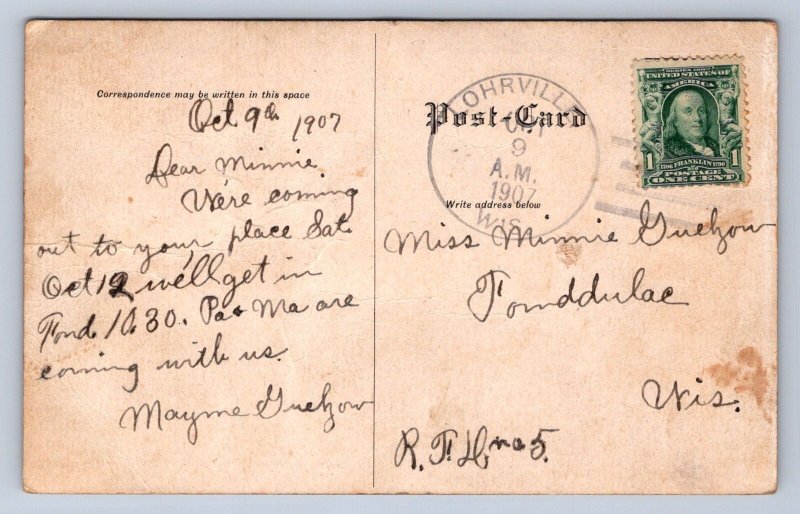 Correspondence may be written in this space
Oct 9th 1907
Dear Minnie.
We're coming
out to your place Sat.
Oct 12 we'll get in
Fond. 10.30. Pa & Ma are
coming with us.
Mayme Guetzow
Post-Card
LOHRVILLE
OCT
9
A.M.
1907
WIS.
SERIES 1902
UNITED STATES OF
AMERICA
1706 FRANKLIN 1790
1 1
POSTAGE
ONE CENT
Write address below
Miss Minnie Guetzow
Fonddulac
Wis.
R.F.D. no 5.